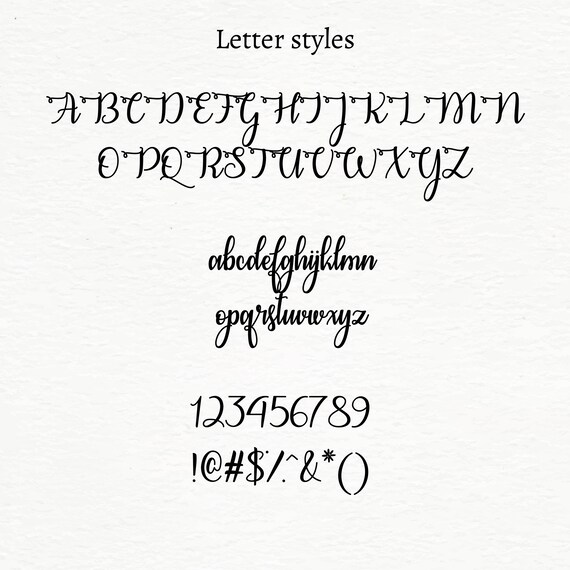 Letter styles
ABCDEFGHIJKLMN
OPQRSTUVWXYZ
abcdefghijklmn
opqrstuvwxyz
123456789
!@#$%^&*()